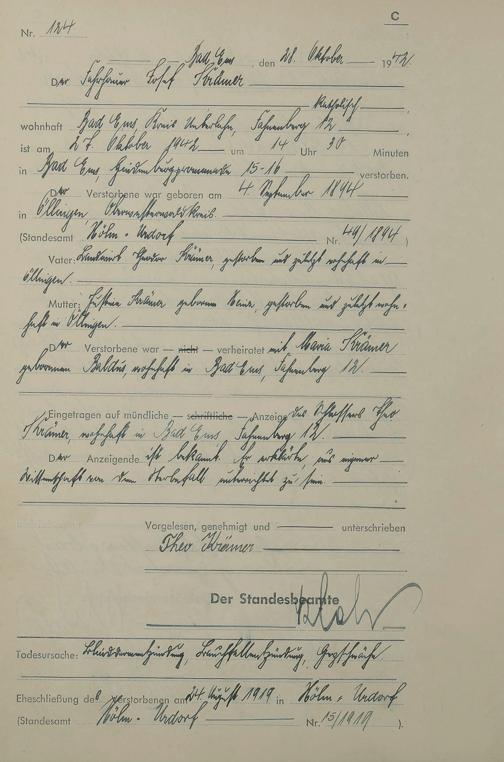 C
Nr. 124
Bad Ems, den 28. Oktober 1942
Der Fahrhauer Josef Krämer
katholisch
wohnhaft Bad Ems, Kreis Unterlahn, Fahnenberg 12
ist am 27. Oktober 1942 um 14 Uhr 30 Minuten
in Bad Ems, Hindenburgpromenade 15-16 verstorben.
Der Verstorbene war geboren am 4. September 1894
in Öllingen, Oberwesterwaldkreis
(Standesamt Nr. 49/1894)
Vater: Landwirt Theodor Krämer, gestorben und zuletzt wohnhaft in
Öllingen.
Mutter: Krämer geborene gestorben und zuletzt wohn-
haft in Öllingen.
Der Verstorbene war — nicht — verheiratet mit Maria Krämer
geborenen Baldus, wohnhaft in Bad Ems, Fahnenberg 12.
Eingetragen auf mündliche — schriftliche — Anzeige des Theo
Krämer, wohnhaft in Bad Ems, Fahnenberg 12.
Der Anzeigende ist bekannt. Er erklärte, aus eigener
Wissenschaft von dem Sterbefall unterrichtet zu sein
Vorgelesen, genehmigt und unterschrieben
Theo Krämer
Der Standesbeamte
Todesursache: Blinddarmentzündung, Bauchfellentzündung, Herzschwäche
Eheschließung des Verstorbenen am 24. August 1919 in
(Standesamt Nr. 15/1919).